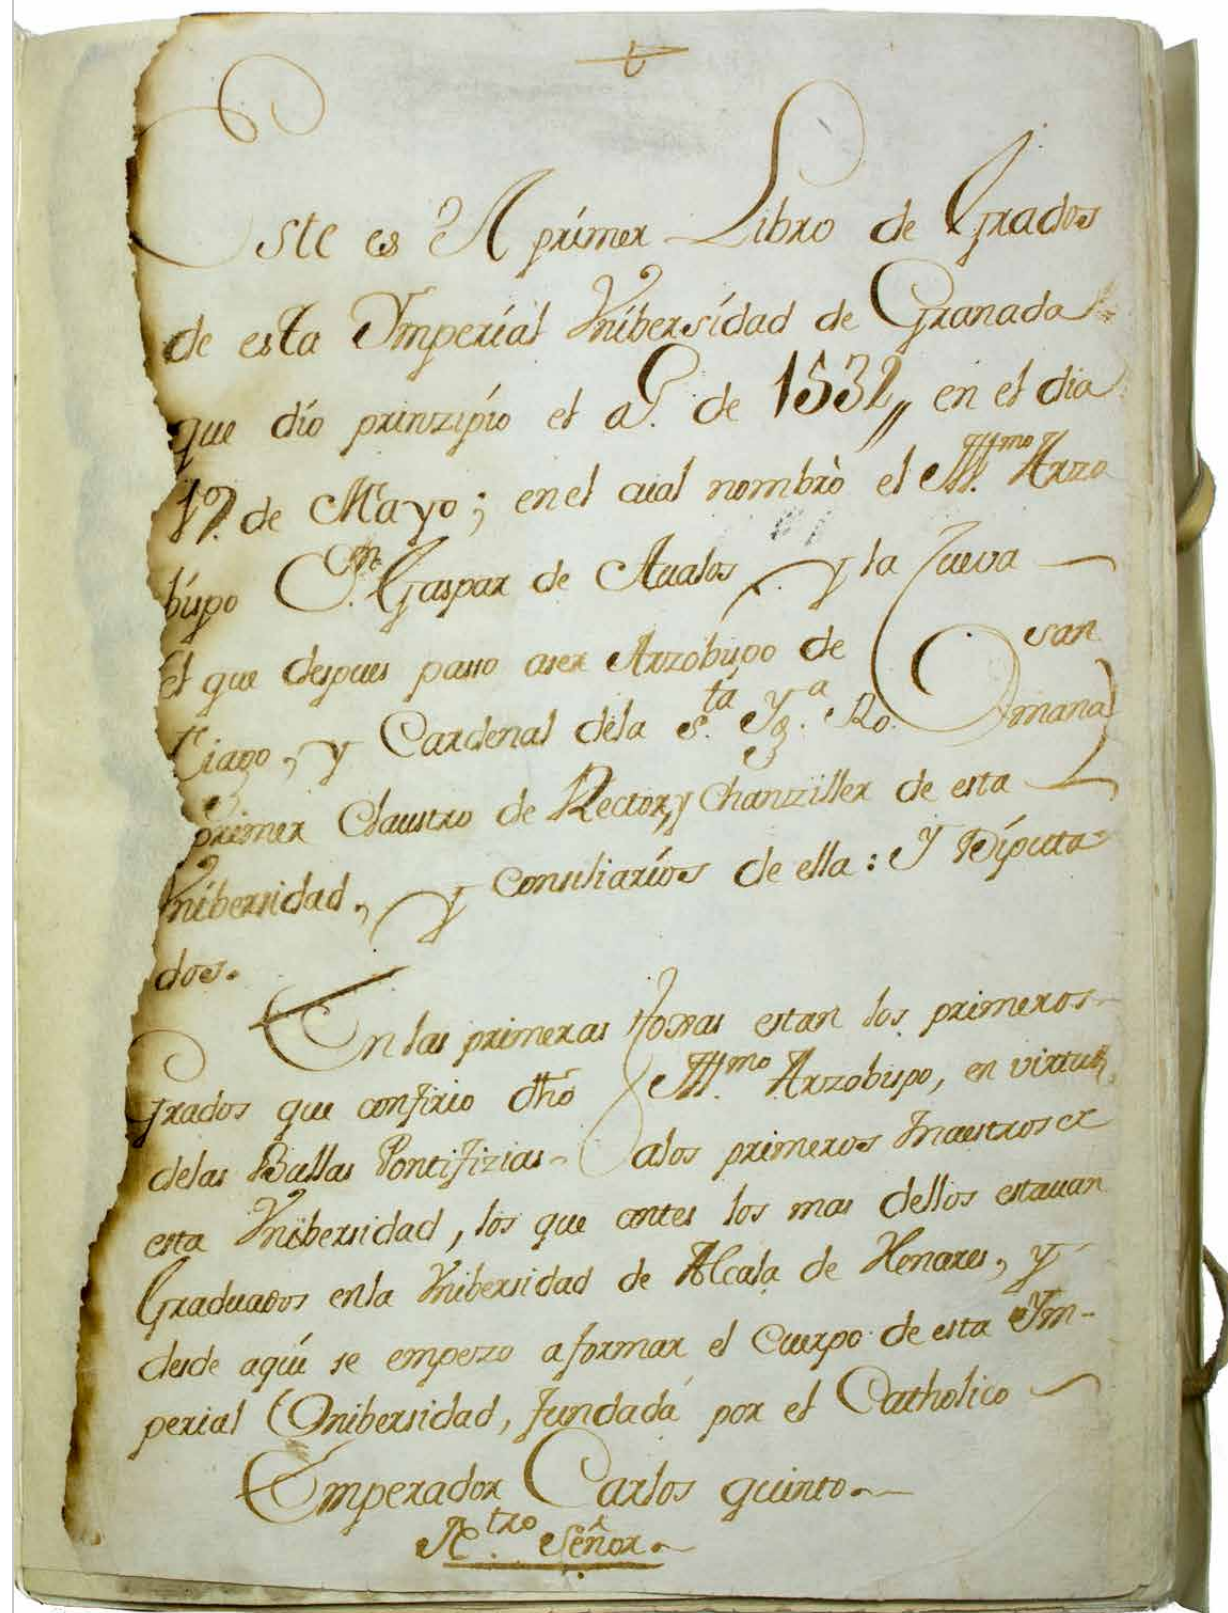 Este es El primer Libro de Grados
de esta Ymperial Vnibersidad de Granada
que dio prinzipio el aº. de 1532,, en el dia
17. de Mayo; en el cual nombrò el Yll.mo Arzo
bispo Gaspar de Aualos, y la Cueva
el que despues passo aser Arzobispo de san
tiago, y Cardenal dela S.ta Yg.a Ro. Omana
primer Claustro de Rector, y Chanziller de esta
Vnibersidad, y Consiliarios de ella: Y Diputa
dos.
En las primeras Hojas estan los primeros
Grados que confirio dho Yll.mo Arzobispo, en virtud
delas Bullas Pontifizias alos primeros Maestros
esta Vnibersidad, los que antes los mas dellos estauan
Graduados enla Vnibersidad de Alcala de Henares, y
desde aqui se empezo aformar el Cuerpo de esta Ym-
perial Onibersidad, fundada por el Catholico
Emperador Carlos quinto.
N.tro Señor.